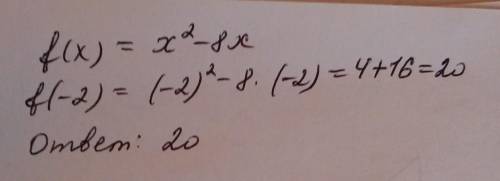 f(x) = x² - 8x
f(-2) = (-2)² - 8 · (-2) = 4 + 16 = 20
Ответ: 20